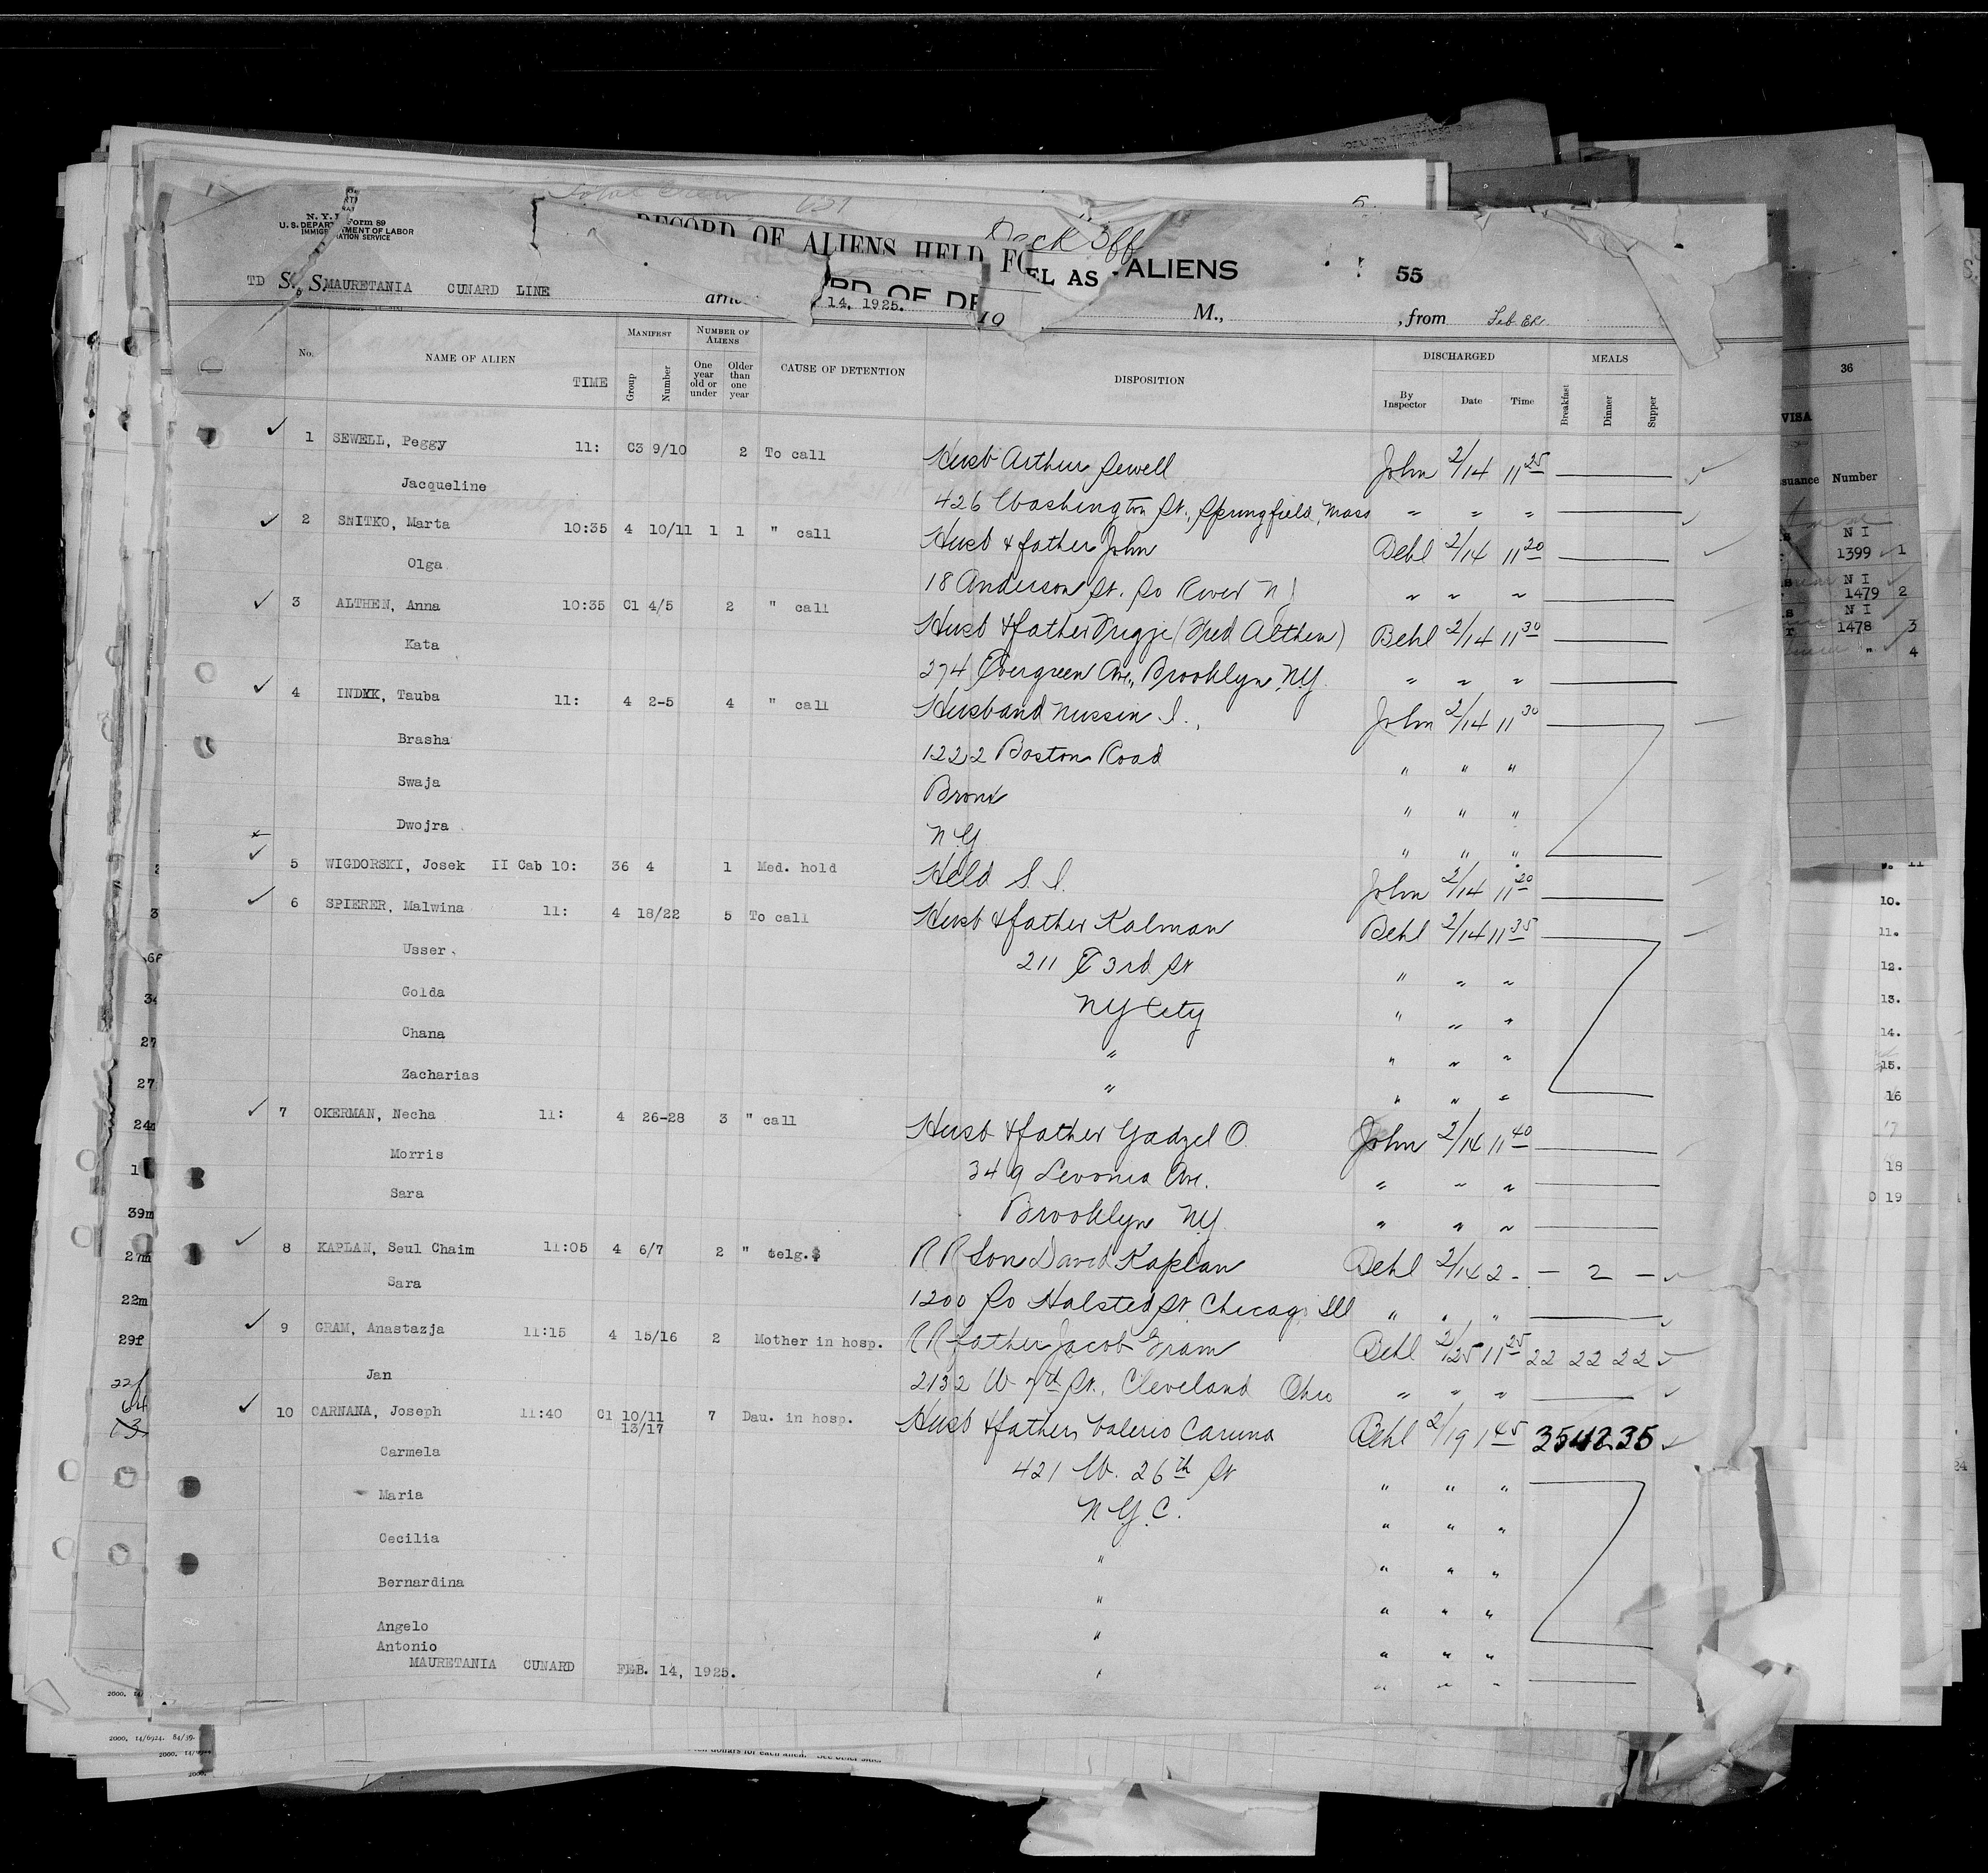 N. Y. Form 89
U. S. DEPARTMENT OF LABOR
IMMIGRATION SERVICE
RECORD OF ALIENS HELD
Deck Off
EL AS
ALIENS
55
TD S. S. MAURETANIA CUNARD LINE
14, 1925.
19
M.,
, from
No.
NAME OF ALIEN
TIME
MANIFEST
Group
Number
NUMBER OF ALIENS
One year old or under
Older than one year
CAUSE OF DETENTION
DISPOSITION
DISCHARGED
By Inspector
Date
Time
MEALS
Breakfast
Dinner
Supper
1 SEWELL, Peggy 11: C3 9/10 2 To call Husb Arthur Sewell John 2/14 11 25
Jacqueline 426 Washington St., Springfield, Mass " " "
2 SNITKO, Marta 10:35 4 10/11 1 1 " call Husb & father John Behl 2/14 11 20
Olga 18 Anderson St. So River N J " " "
3 ALTHEN, Anna 10:35 C1 4/5 2 " call Husb & father (Fred Althen) Behl 2/14 11 30
Kata 274 Evergreen Ave., Brooklyn N.Y. " " "
4 INDYK, Tauba 11: 4 2-5 4 " call Husband Nussin I., John 2/14 11 30
Brasha 1222 Boston Road " " "
Swaja Bronx " " "
Dwojra N.Y " " "
5 WIGDORSKI, Josek II Cab 10: 36 4 1 Med. hold Held S. I. John 2/14 11 20
6 SPIERER, Malwina 11: 4 18/22 5 To call Husb & father Kalman Behl 2/14 11 35
Usser 211 E 3rd St " " "
Golda NY City " " "
Chana " " " "
Zacharias " " " "
7 OKERMAN, Necha 11: 4 26-28 3 " call Husb & father Gadzel O. John 2/14 11 40
Morris 349 Livonia Ave. " " "
Sara Brooklyn N.Y. " " "
8 KAPLAN, Seul Chaim 11:05 4 6/7 2 " telg.$ R R Son David Kaplan Behl 2/14 2 - - 2 -
Sara 1200 So Halsted St Chicago Ill " " "
9 GRAM, Anastazja 11:15 4 15/16 2 Mother in hosp. R R father Jacob Gram Behl 2/25 11 25 22 22 22
Jan 2132 W 7th St., Cleveland Ohio " " "
10 CARNANA, Joseph 11:40 C1 10/11 13/17 7 Dau. in hosp. Husb & father Valerio Caruna Behl 2/19 1 45 35 42 35
Carmela 421 W. 26th St " " "
Maria N.Y.C. " " "
Cecilia " " " "
Bernardina " " " "
Angelo " " " "
Antonio " " " "
MAURETANIA CUNARD FEB. 14, 1925.
36
VISA
Number
N I
1399 1
N I
1479 2
N I
1478 3
" 4
10.
11.
12.
13.
14.
15.
16
17
18
19
34
27
27
24m
39m
27m
22m
29f
22f
24
2000, 14/6924. 84/39-